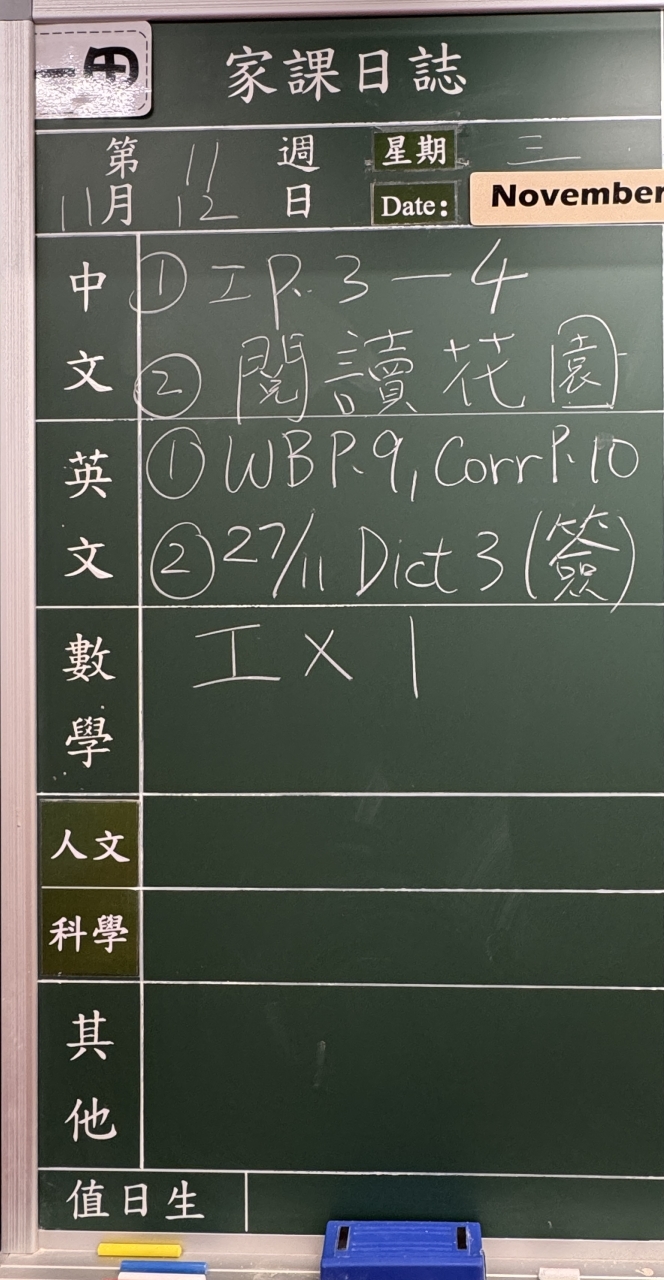 一甲
家課日誌
第 11 週 星期 三
11月 12 日 Date: November
中文
① 工 P.3－4
② 閱讀花園
英文
① WB P.9, Corr P.10
② 27/11 Dict 3 (簽)
數學
工 × 1
人文
科學
其他
值日生